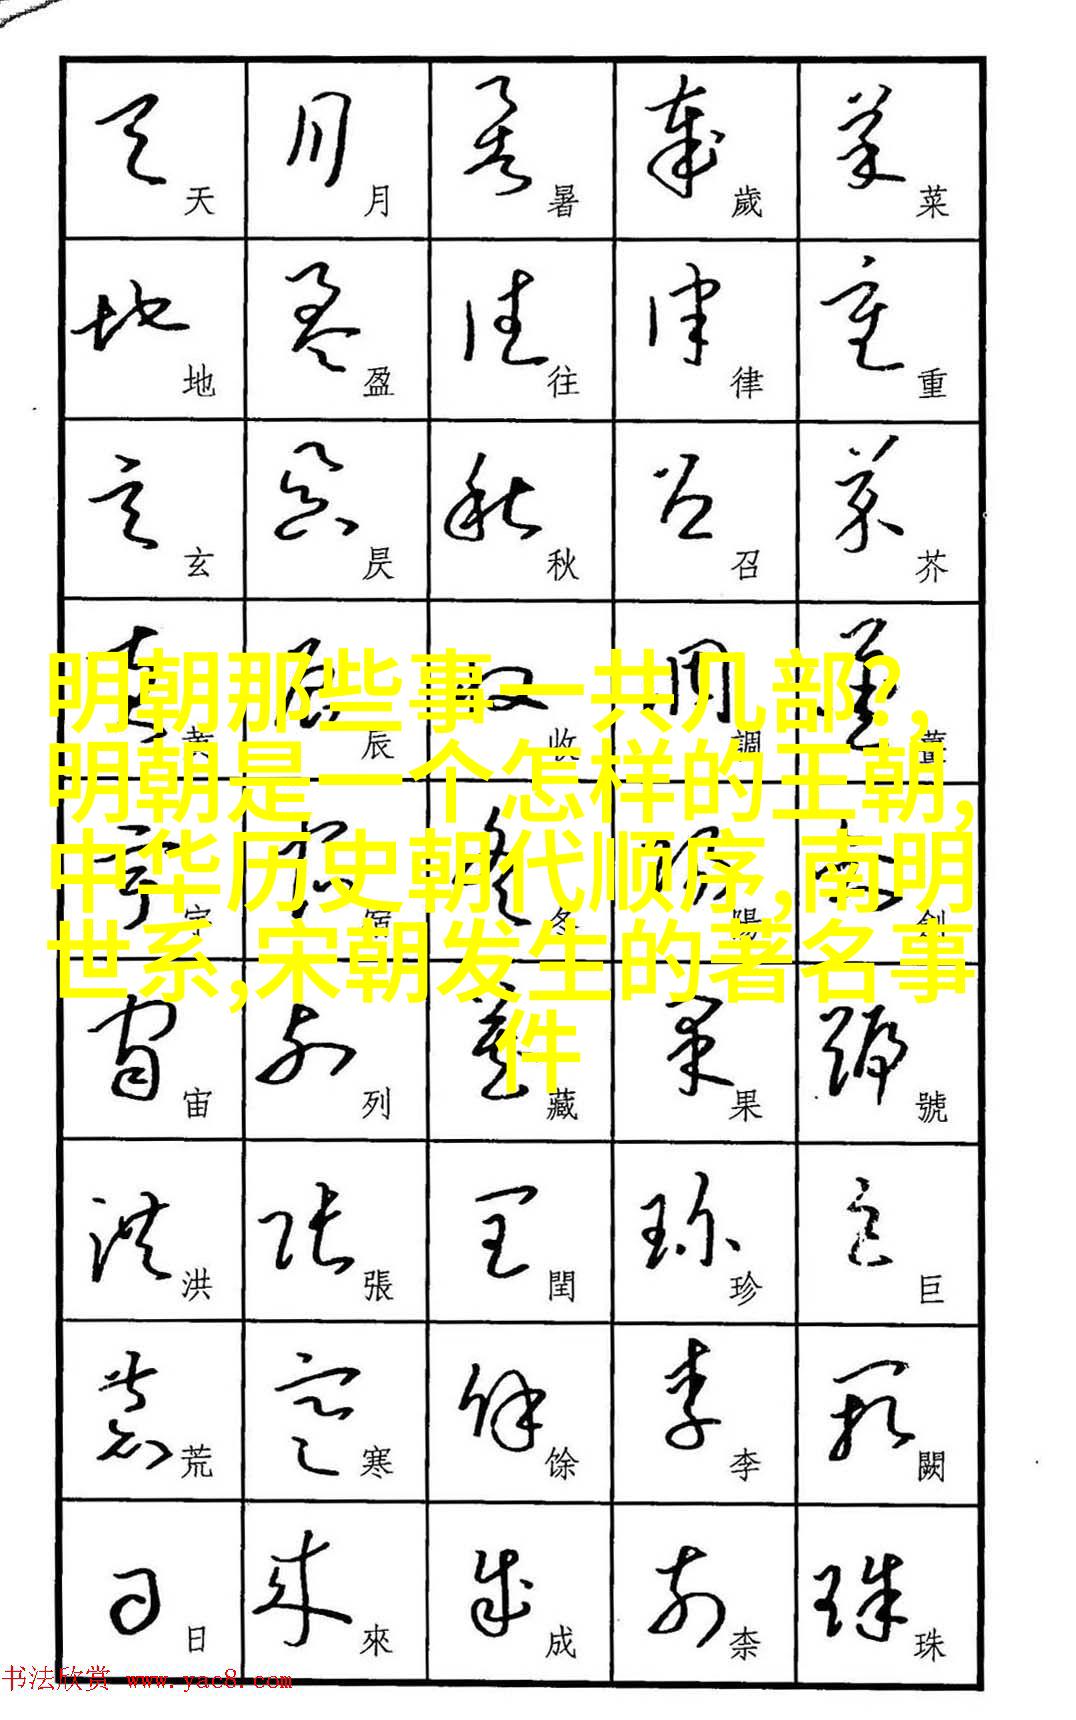 天 月 暑 歲 菜
地 盈 往 律 重
玄 昃 秋 召 芥
黃 辰 收 調 薑
明朝那些事一共几部?,
明朝是一个怎样的王朝,
中华历史朝代顺序,南明
世系,宋朝发生的著名事
件
宇 宿 冬 陽 劍
宙 列 藏 果 號
洪 張 閏 珍 巨
荒 寒 馀 李 闕
日 來 成 柰 珠
书法欣赏 www.yac8.com